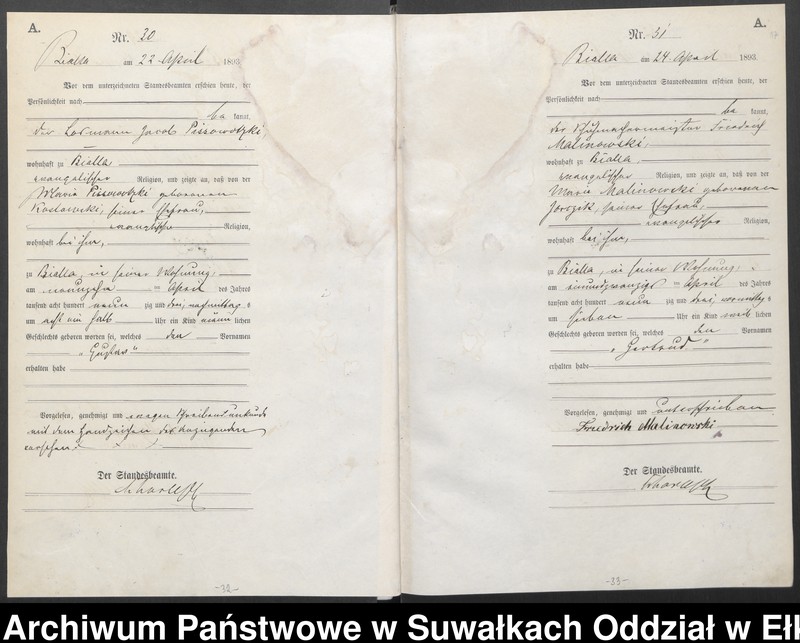 A.
Nr. 30
Bialla am 22 April 1893
Vor dem unterzeichneten Standesbeamten erschien heute, der
Persönlichkeit nach
be kannt,
der Losmann Jacob Pissowotzki,
wohnhaft zu Bialla
evangelischer Religion, und zeigte an, daß von der
Marie Pissowotzki geborenen
seiner Ehefrau,
evangelischer Religion,
wohnhaft bei ihm,
zu Bialla, in seiner Wohnung,
am neunzehn ten April des Jahres
tausend acht hundert neun zig und drei, nachmittags
um acht ein halb Uhr ein Kind männ lichen
Geschlechts geboren worden sei, welches den Vornamen
„Gustav“
erhalten habe
Vorgelesen, genehmigt und wegen Schreibensunkunde
mit dem Handzeichen des Anzeigenden
versehen.
Der Standesbeamte.
A.
Nr. 31
Bialla am 24 April 1893.
Vor dem unterzeichneten Standesbeamten erschien heute, der
Persönlichkeit nach
be kannt,
der Schuhmachermeister Friedrich
Malinowski,
wohnhaft zu Bialla,
evangelischer Religion, und zeigte an, daß von der
Marie Malinowski geborenen
Jorczik, seiner Ehefrau,
evangelischer Religion,
wohnhaft bei ihm,
zu Bialla, in seiner Wohnung,
am einundzwanzig ten April des Jahres
tausend acht hundert neun zig und drei, vormittags
um sieben Uhr ein Kind weib lichen
Geschlechts geboren worden sei, welches den Vornamen
„Gertrud“
erhalten habe
Vorgelesen, genehmigt und unterschrieben
Friedrich Malinowski
Der Standesbeamte.
-32-
-33-
Archiwum Państwowe w Suwałkach Oddział w Ełk